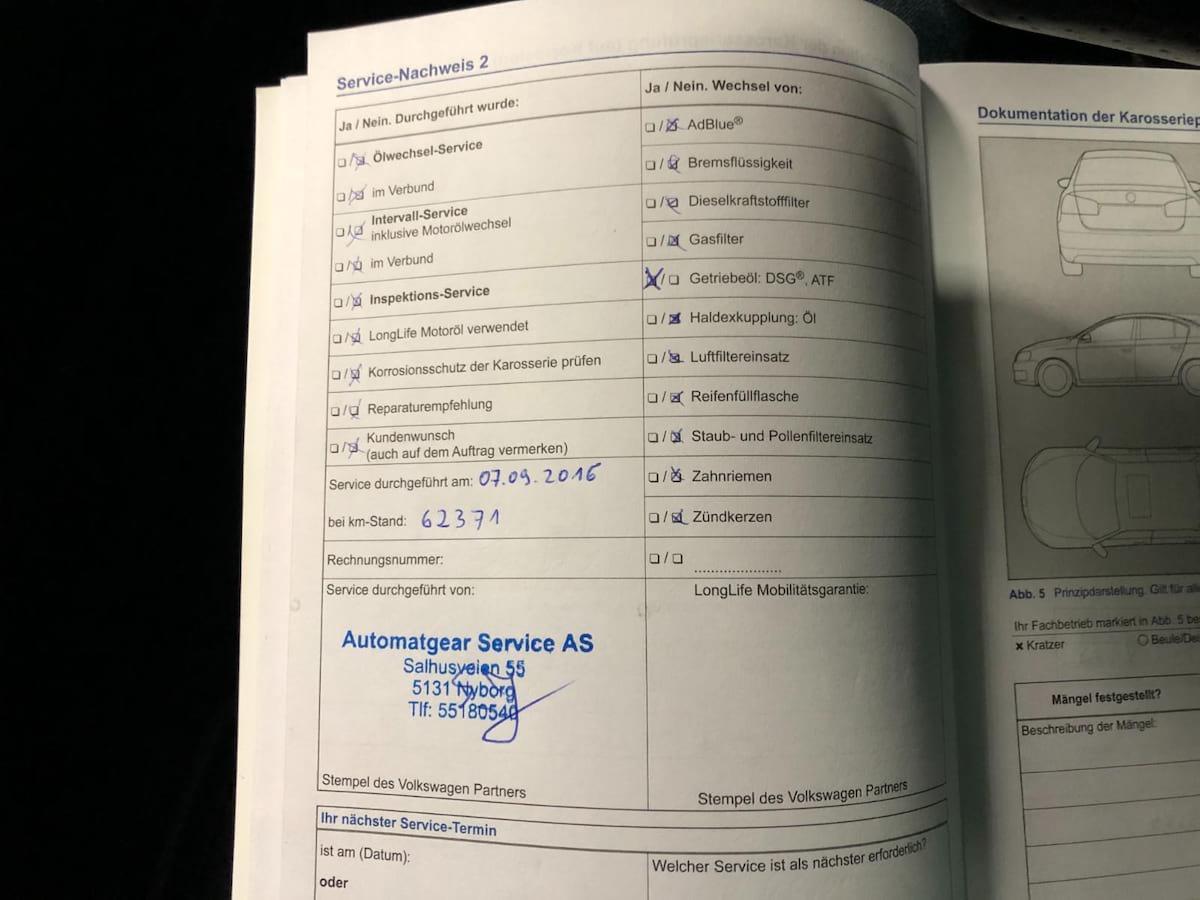 Service-Nachweis 2
Ja / Nein. Durchgeführt wurde:
Ölwechsel-Service
im Verbund
Intervall-Service
inklusive Motorölwechsel
im Verbund
Inspektions-Service
LongLife Motoröl verwendet
Korrosionsschutz der Karosserie prüfen
Reparaturempfehlung
Kundenwunsch
(auch auf dem Auftrag vermerken)
Service durchgeführt am: 07.09.2016
bei km-Stand: 62371
Rechnungsnummer:
Service durchgeführt von:
Automatgear Service AS
Salhusveien 55
5131 Nyborg
Tlf: 55180540
Stempel des Volkswagen Partners
Ja / Nein. Wechsel von:
AdBlue®
Bremsflüssigkeit
Dieselkraftstofffilter
Gasfilter
Getriebeöl: DSG®, ATF
Haldexkupplung: Öl
Luftfiltereinsatz
Reifenfüllflasche
Staub- und Pollenfiltereinsatz
Zahnriemen
Zündkerzen
LongLife Mobilitätsgarantie:
Stempel des Volkswagen Partners
Ihr nächster Service-Termin
ist am (Datum):
oder
Welcher Service ist als nächster erforderlich?
Dokumentation der
Abb. 5 Prinzipdarstellung. Gilt für
Ihr Fachbetrieb markiert in Abb. 5
x Kratzer
Mängel festgestellt?
Beschreibung der Mängel: